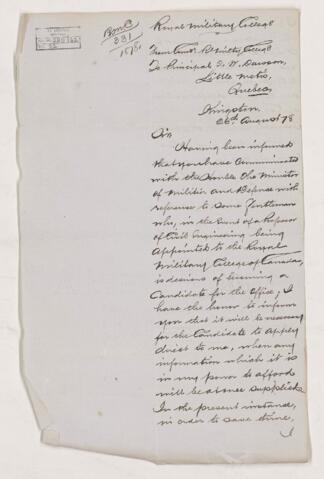 RMC
331
1878
Royal Military College
From Comdt. R. Military College
To Principal J. W. Dawson,
Little Metis,
Quebec
Kingston.
26th August 78
Sir
Having been informed
that you have communicated
with the Honble the Minister
of Militia and Defence with
reference to some Gentleman
who, in the event of a Professor
of Civil Engineering being
appointed to the Royal
Military College of Canada,
is desirous of becoming a
Candidate for the Office, I
have the honor to inform
you that it will be necessary
for the Candidate to apply
direct to me, when any
information which it is
in my power to afford
will be at once supplied.
In the present instance,
in order to save time,